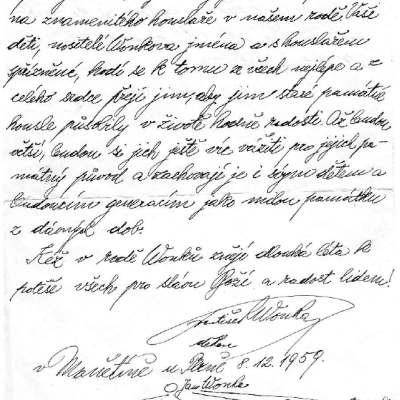 na znamenitého houslaře v našem rodě. Vaše
děti, nositelé Wonkova jména a s houslařem
spřízněné, hodí se k tomu ze všech nejlépe a z
celého srdce přeji jim, aby jim staré památné
housle působily v životě hodně radosti. Až budou
větší, budou si jich ještě víc vážiti pro jejich pa-
mátný původ a zachovají je i svým dětem a
budoucím generacím jako milou památku
z dávných dob.
Kéž v rodě Wonků znějí dlouhá léta ke
potěše všech pro slávu Boží a radost lidem!
Wonka
děkan
v Manětíně u Plzně 8.12.1959.
Jan Wonka